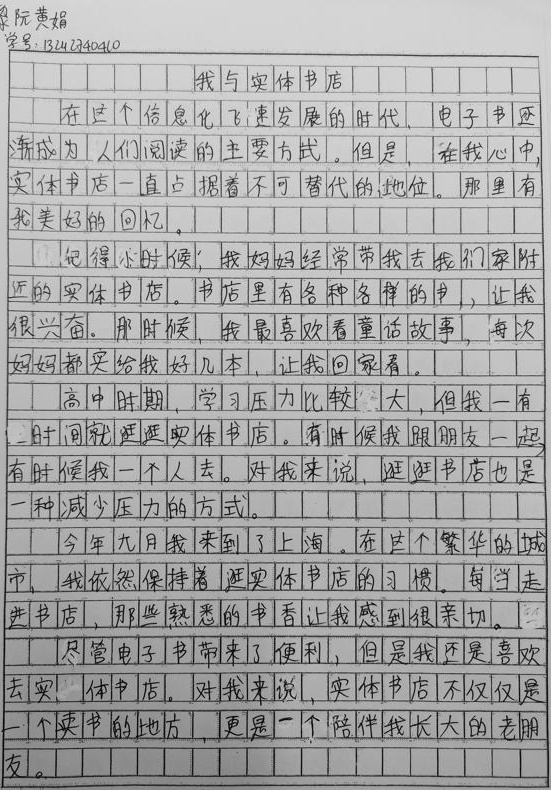 梁阮黄娟
学号:13242740410
我与实体书店
在这个信息化飞速发展的时代,电子书逐
渐成为人们阅读的主要方式。但是,在我心中,
实体书店一直占据着不可替代的地位。那里有
我美好的回忆。
记得小时候,我妈妈经常带我去我们家附
近的实体书店。书店里有各种各样的书,让我
很兴奋。那时候,我最喜欢看童话故事,每次
妈妈都买给我好几本,让我回家看。
高中时期,学习压力比较大,但我一有
时间就逛逛实体书店。有时候我跟朋友一起,
有时候我一个人去。对我来说,逛逛书店也是
一种减少压力的方式。
今年九月我来到了上海。在这个繁华的城
市,我依然保持着逛实体书店的习惯。每当走
进书店,那些熟悉的书香让我感到很亲切。
尽管电子书带来了便利,但是我还是喜欢
去实体书店。对我来说,实体书店不仅仅是
一个卖书的地方,更是一个陪伴我长大的老朋
友。